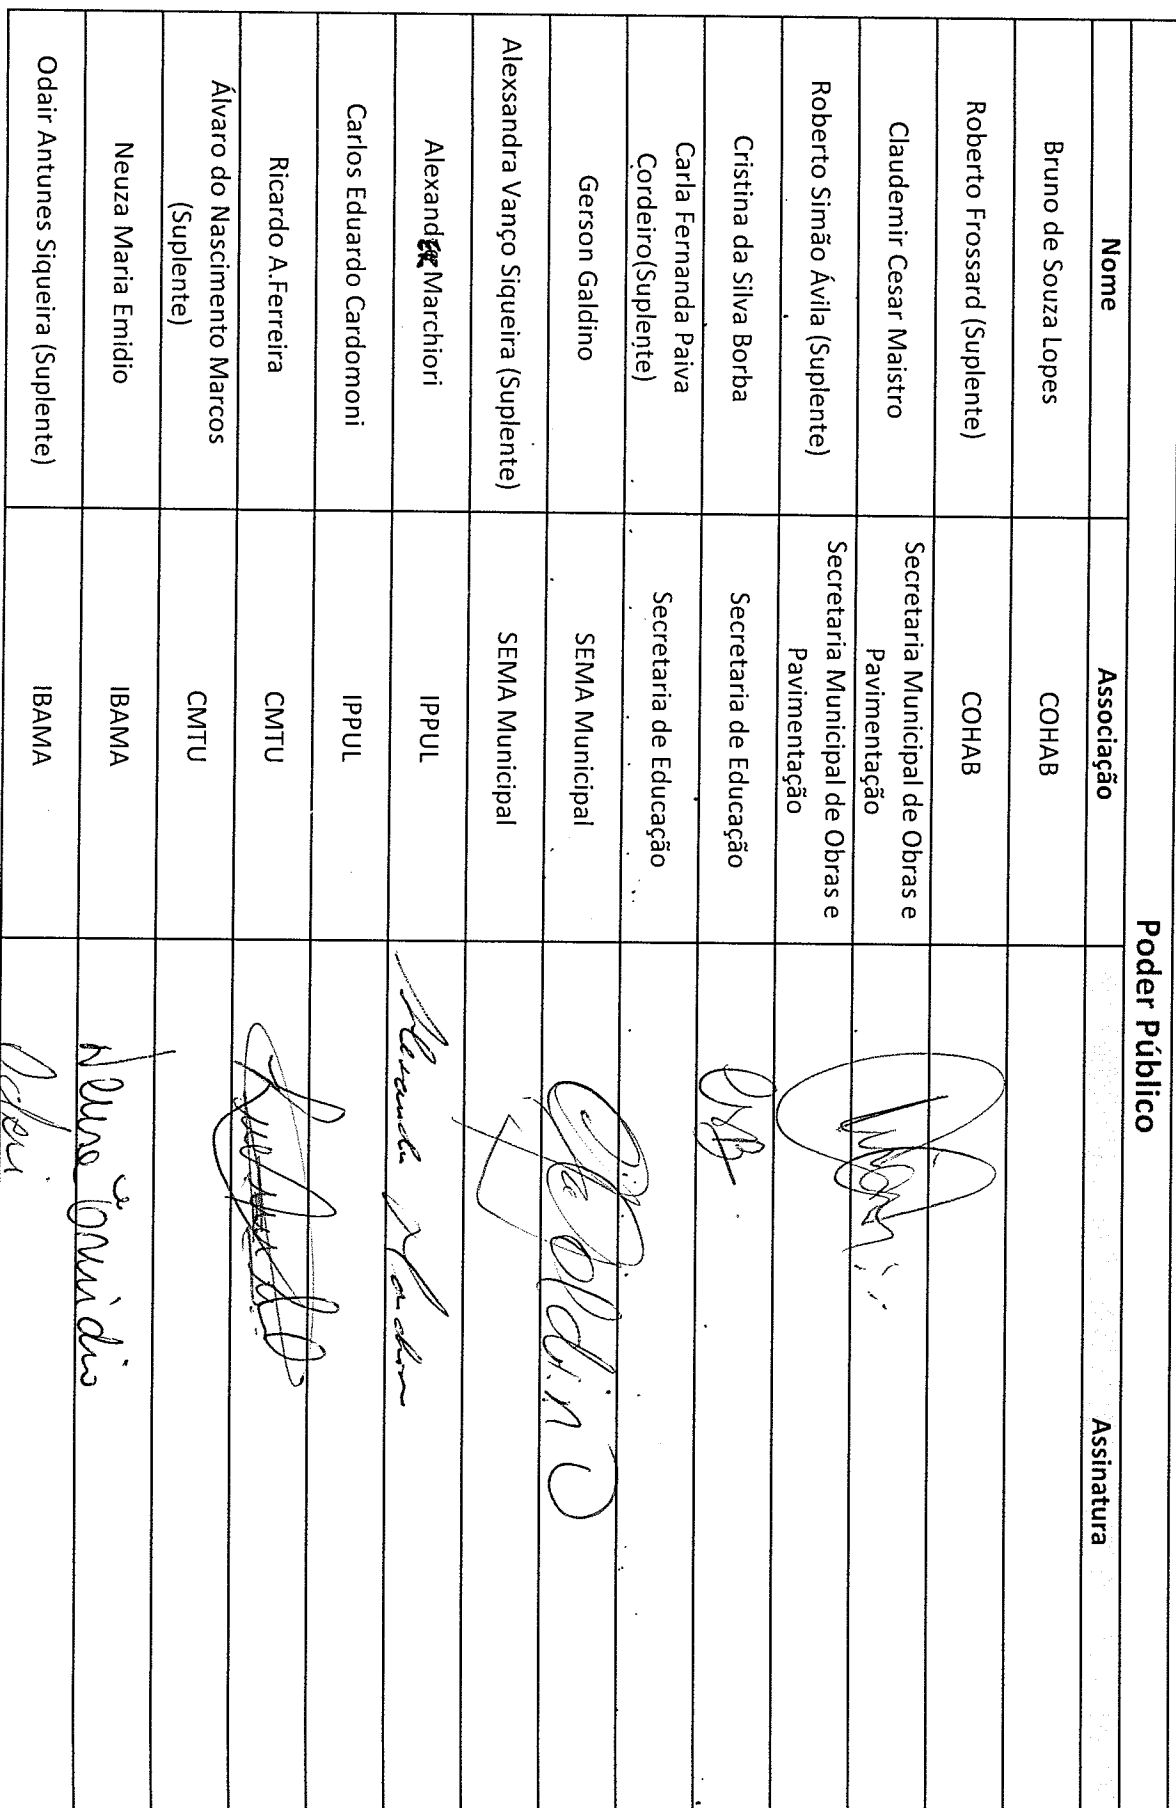 Poder Público
Nome Associação Assinatura
Bruno de Souza Lopes COHAB
Roberto Frossard (Suplente) COHAB
Claudemir Cesar Maistro Secretaria Municipal de Obras e
Pavimentação
Roberto Simão Ávila (Suplente) Secretaria Municipal de Obras e
Pavimentação
Cristina da Silva Borba Secretaria de Educação
Carla Fernanda Paiva
Cordeiro(Suplente) Secretaria de Educação
Gerson Galdino SEMA Municipal
Alexsandra Vanço Siqueira (Suplente) SEMA Municipal
Alexandre Marchiori IPPUL
Carlos Eduardo Cardomoni IPPUL
Ricardo A.Ferreira CMTU
Álvaro do Nascimento Marcos
(Suplente) CMTU
Neuza Maria Emidio IBAMA Neuza Emidio
Odair Antunes Siqueira (Suplente) IBAMA